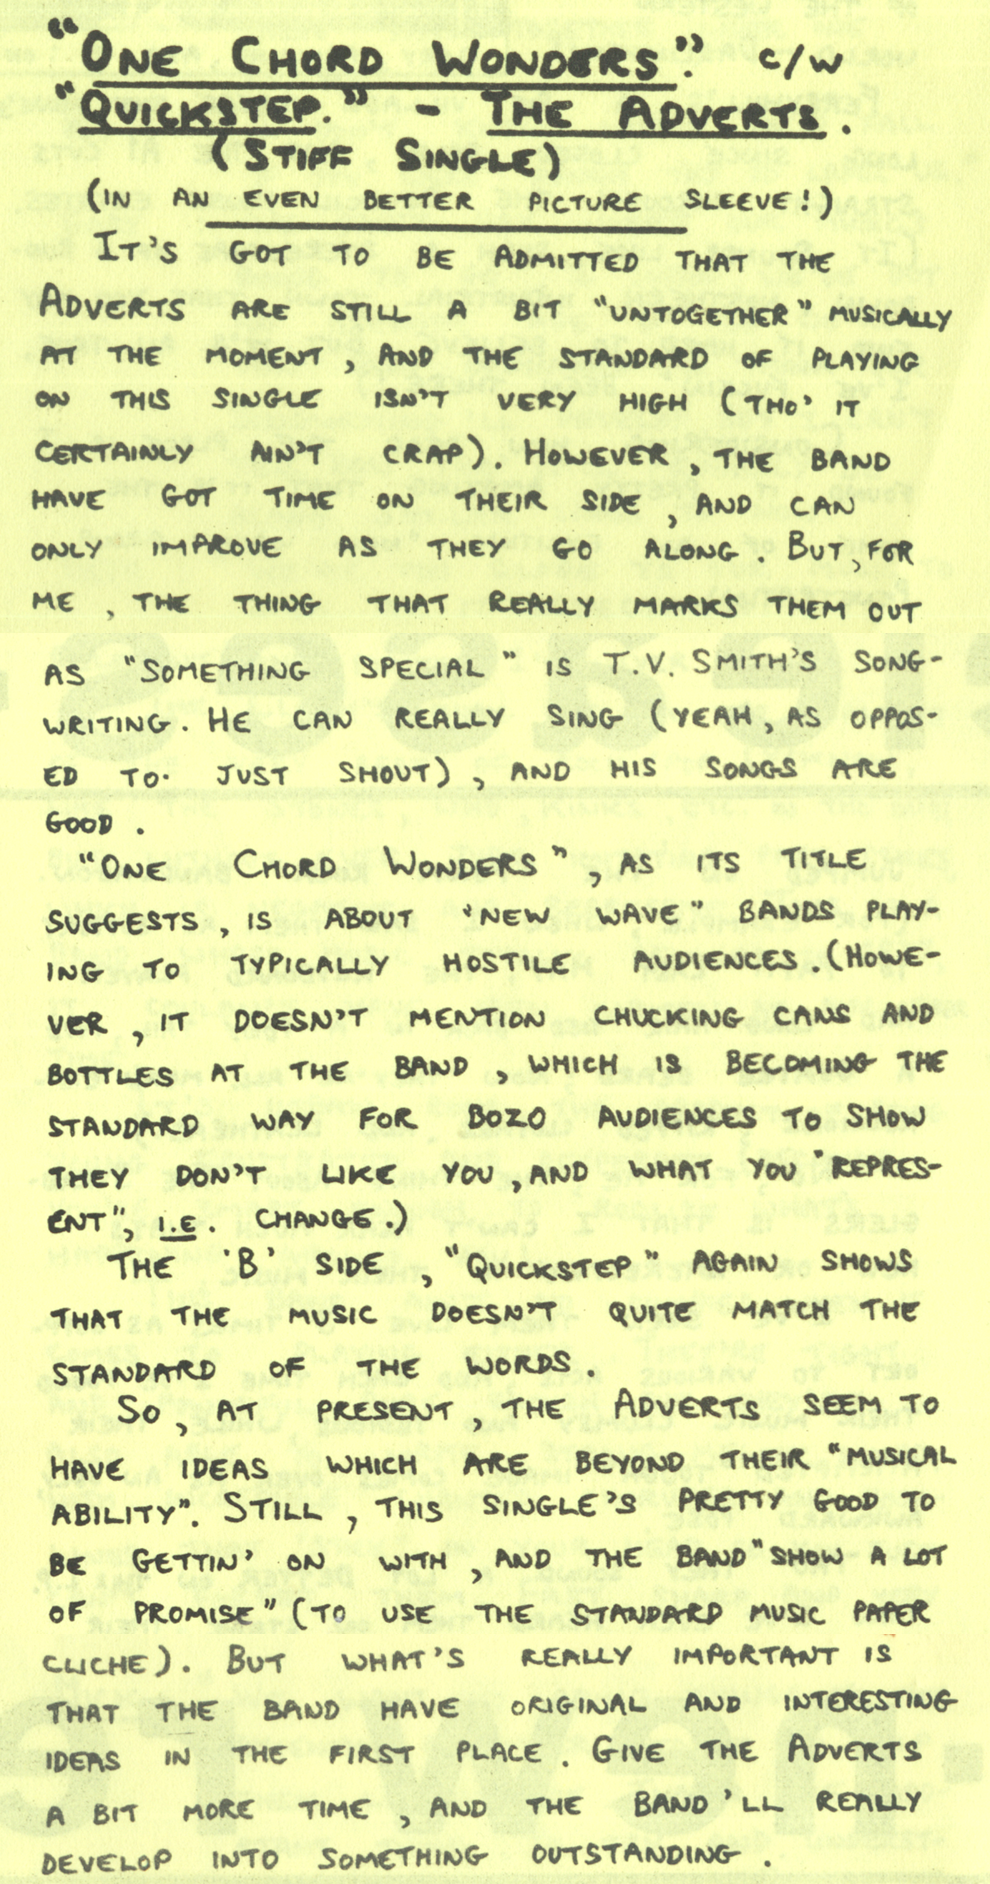 "ONE CHORD WONDERS". C/W
"QUICKSTEP." - THE ADVERTS.
(STIFF SINGLE)
(IN AN EVEN BETTER PICTURE SLEEVE!)
IT'S GOT TO BE ADMITTED THAT THE
ADVERTS ARE STILL A BIT "UNTOGETHER" MUSICALLY
AT THE MOMENT, AND THE STANDARD OF PLAYING
ON THIS SINGLE ISN'T VERY HIGH (THO' IT
CERTAINLY AIN'T CRAP). HOWEVER, THE BAND
HAVE GOT TIME ON THEIR SIDE, AND CAN
ONLY IMPROVE AS THEY GO ALONG. BUT, FOR
ME, THE THING THAT REALLY MARKS THEM OUT
AS "SOMETHING SPECIAL" IS T.V. SMITH'S SONG-
WRITING. HE CAN REALLY SING (YEAH, AS OPPOS-
ED TO JUST SHOUT), AND HIS SONGS ARE
GOOD.
"ONE CHORD WONDERS", AS ITS TITLE
SUGGESTS, IS ABOUT "NEW WAVE" BANDS PLAY-
ING TO TYPICALLY HOSTILE AUDIENCES. (HOWE-
VER, IT DOESN'T MENTION CHUCKING CANS AND
BOTTLES AT THE BAND, WHICH IS BECOMING THE
STANDARD WAY FOR BOZO AUDIENCES TO SHOW
THEY DON'T LIKE YOU, AND WHAT YOU "REPRES-
ENT", I.E. CHANGE.)
THE 'B' SIDE, "QUICKSTEP" AGAIN SHOWS
THAT THE MUSIC DOESN'T QUITE MATCH THE
STANDARD OF THE WORDS.
SO, AT PRESENT THE ADVERTS SEEM TO
HAVE IDEAS WHICH ARE BEYOND THEIR "MUSICAL
ABILITY". STILL, THIS SINGLE'S PRETTY GOOD TO
BE GETTIN' ON WITH, AND THE BAND "SHOW A LOT
OF PROMISE" (TO USE THE STANDARD MUSIC PAPER
CLICHE). BUT WHAT'S REALLY IMPORTANT IS
THAT THE BAND HAVE ORIGINAL AND INTERESTING
IDEAS IN THE FIRST PLACE. GIVE THE ADVERTS
A BIT MORE TIME, AND THE BAND'LL REALLY
DEVELOP INTO SOMETHING OUTSTANDING.